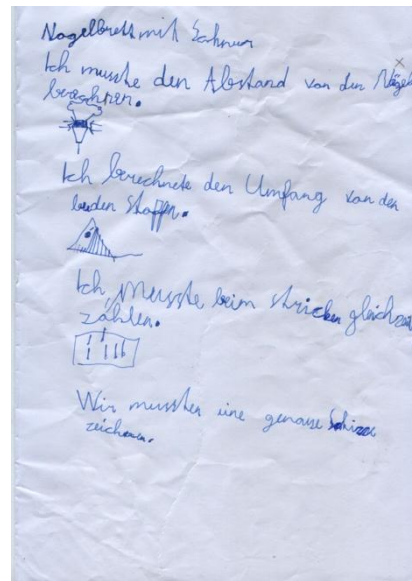 Nagelbrett mit Schnur
Ich musste den Abstand von den Nägel
berechnen.
Ich berechnete den Umfang von den
beiden
Ich musste beim stricken gleichzei
zählen.
Wir mussten eine genaue
zeichnen.